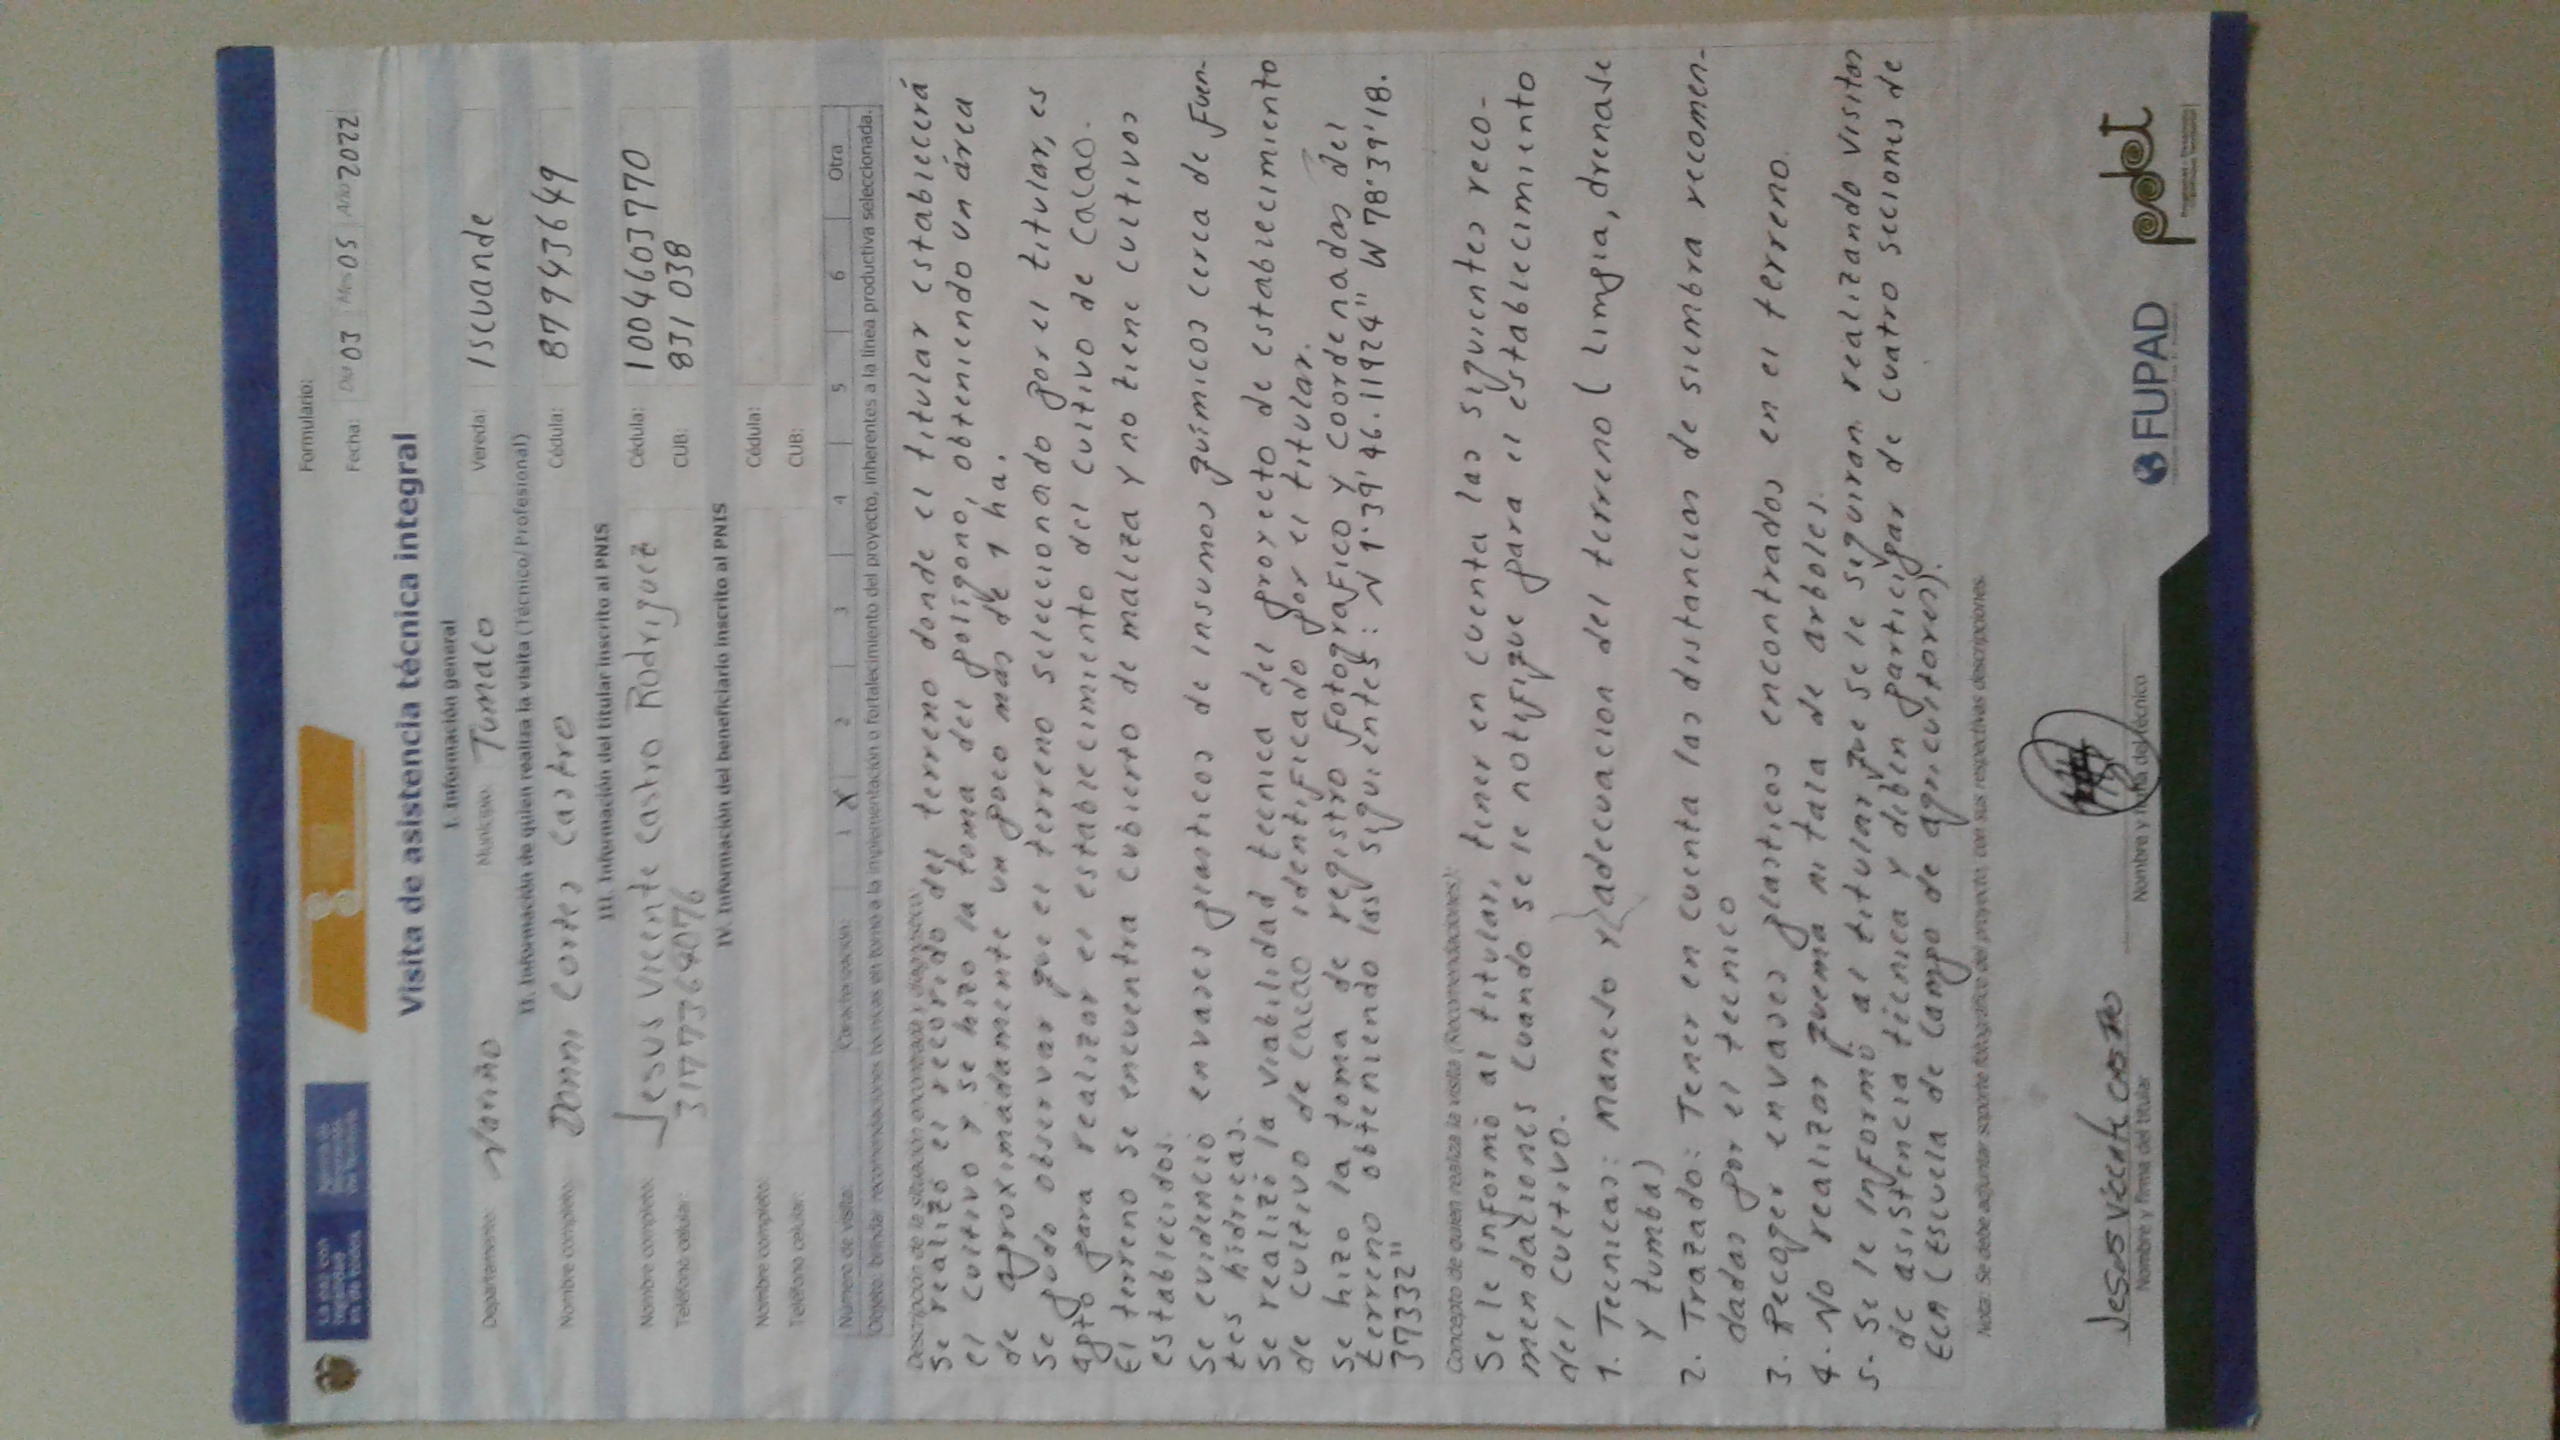 La paz con
legalidad
es de todos
Agencia de
Renovación
del Territorio
Formulario:
Fecha: Día 03 Mes 05 Año 2022
Visita de asistencia técnica integral
I. Información general
Departamento: Nariño Municipio: Tumaco Vereda: Iscuande
II. Información de quien realiza la visita (Técnico/Profesional)
Nombre completo: Donni Cortes Castro Cédula: 87943649
III. Información del titular inscrito al PNIS
Nombre completo: Jesus Vicente Castro Rodriguez Cédula: 1004603770
Teléfono celular: 3177364076 CUB: 831038
IV. Información del beneficiario inscrito al PNIS
Nombre completo: Cédula:
Teléfono celular: CUB:
Número de visita: Caracterización: 1 X 2 3 4 5 6 Otra
Objeto: brindar recomendaciones técnicas en torno a la implementación o fortalecimiento del proyecto, inherentes a la línea productiva seleccionada.
Descripción de la situación encontrada y diagnóstico:
Se realizó el recorrido del terreno donde el titular establecerá
el cultivo y se hizo la toma del polígono, obteniendo un área
de aproximadamente un poco mas de 1 ha.
Se pudo observar que el terreno seleccionado por el titular, es
apto para realizar el establecimiento del cultivo de cacao.
El terreno se encuentra cubierto de maleza y no tiene cultivos
establecidos.
Se evidencio envases plasticos de insumos químicos cerca de fuen-
tes hídricas.
Se realizó la viabilidad tecnica del proyecto de establecimiento
de cultivo de cacao identificado por el titular.
Se hizo la toma de registro fotografico y coordenadas del
terreno obteniendo las siguientes: N 1°39'46.11924" W 78°39'18.
37332"
Concepto de quien realiza la visita (Recomendaciones):
Se le informó al titular, tener en cuenta las siguientes reco-
mendaciones cuando se le notifique para el establecimiento
del cultivo.
1. Tecnicas: Manejo y adecuacion del terreno (limpia, drenaje
y tumba)
2. Trazado: Tener en cuenta las distancias de siembra recomen-
dadas por el tecnico
3. Recoger envases plasticos encontrados en el terreno.
4. No realizar quema ni tala de arboles.
5. Se le informó al titular que se le seguiran realizando visitas
de asistencia técnica y deben participar de cuatro seciones de
ECA (Escuela de Campo de agricultores).
Nota: Se debe adjuntar soporte fotográfico del proyecto, con sus respectivas descripciones.
Jesus Vicente Castro
Nombre y firma del titular
Nombre y firma del técnico
FUPAD
pdet